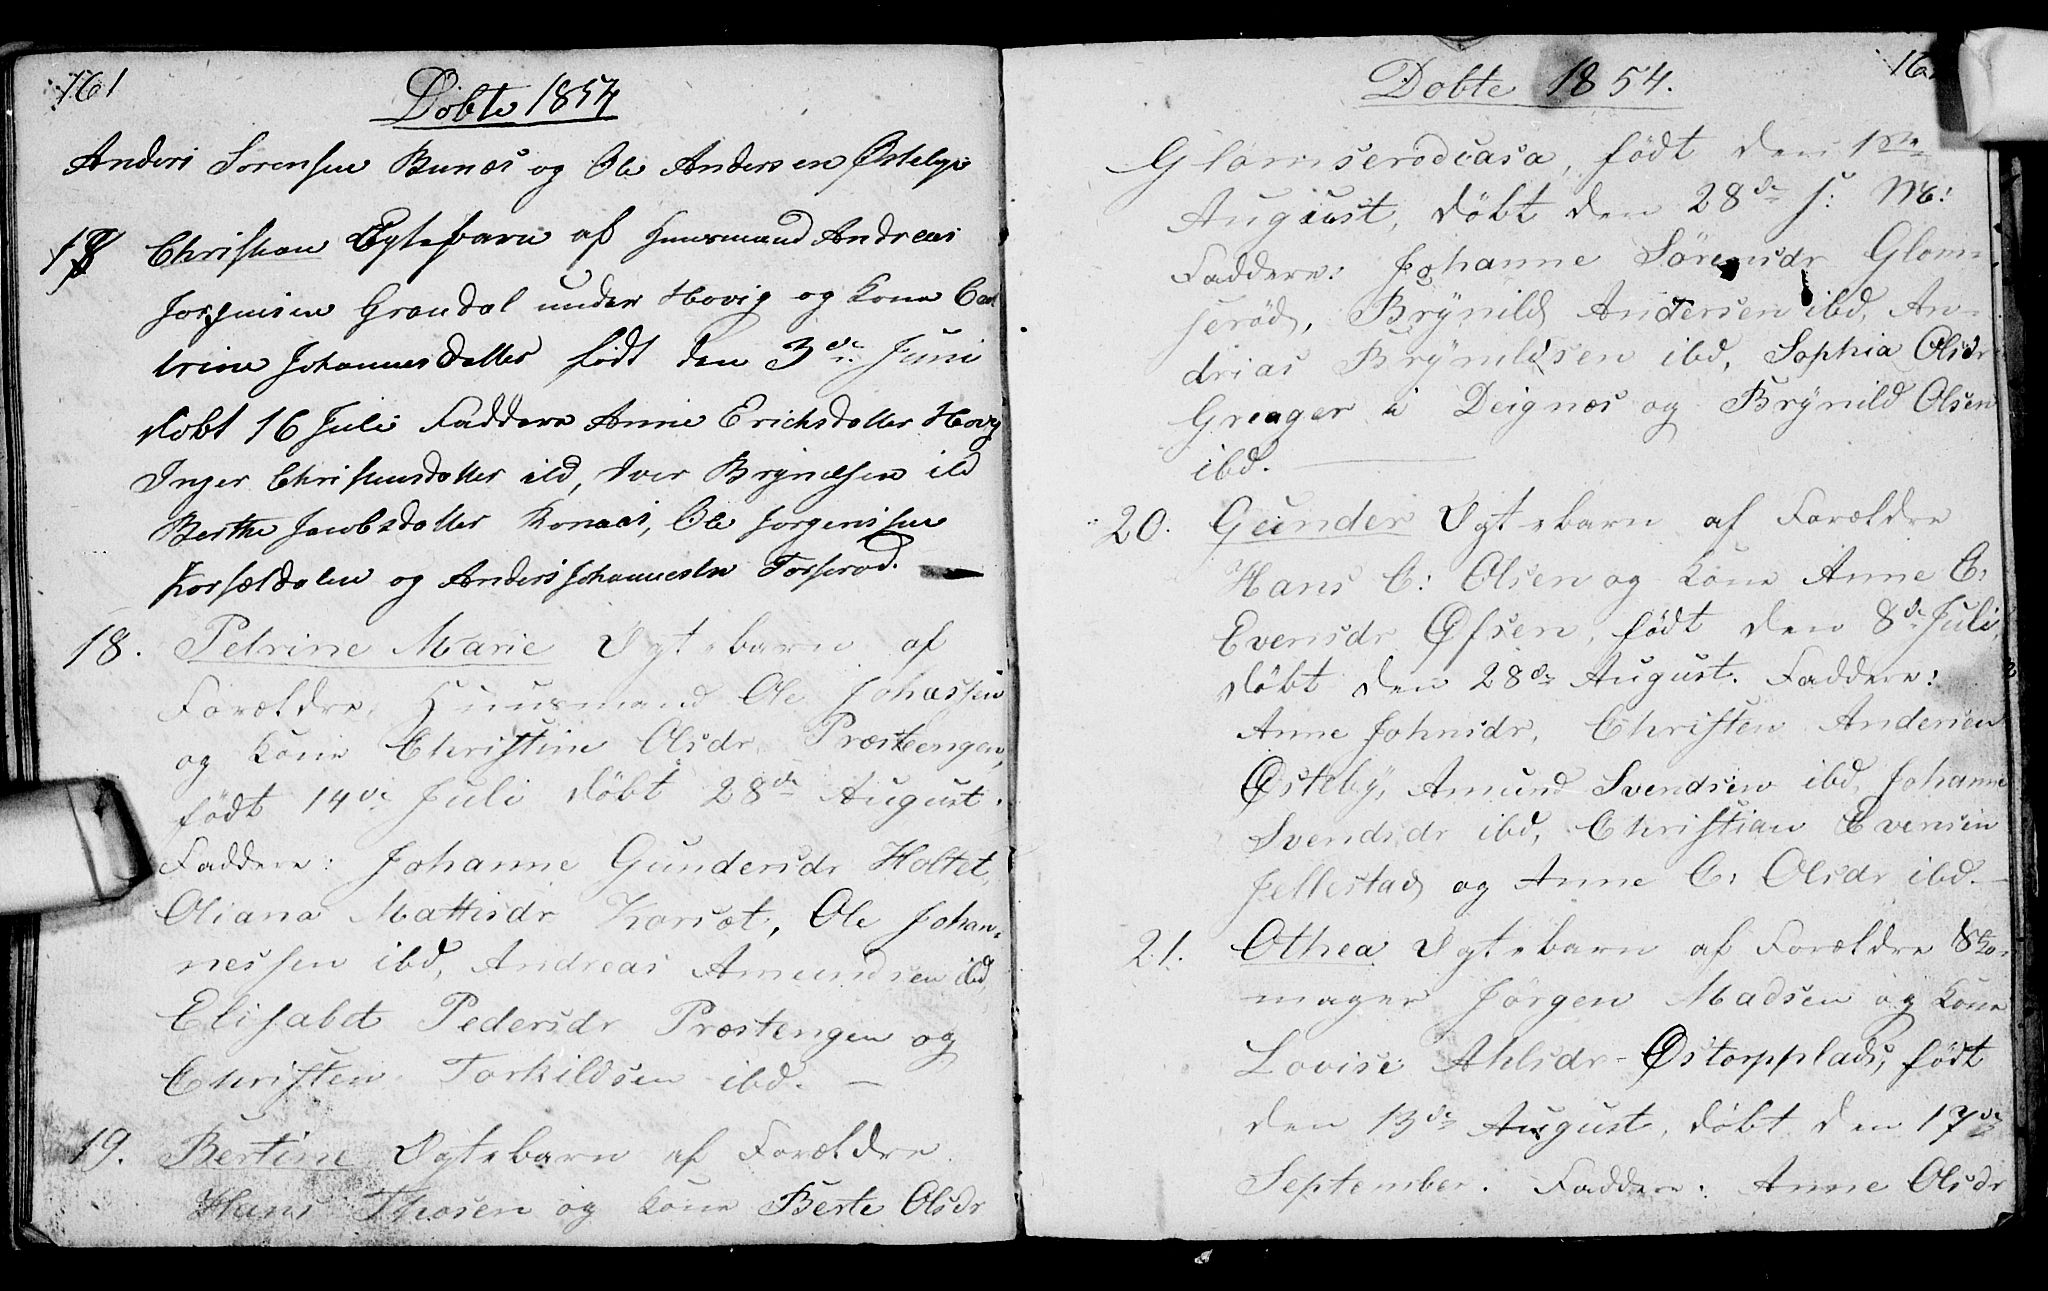 161
Døbte 1854
Anders Sørensen Bunæs og Ole Andersen Østebye
17 Christian Egtebarn af Huusmand Andreas
Jørgensen Grøndal under Hovig og Kone Ca
trine Johannesdatter født den 3de Juni
døbt 16 Juli Faddere Anne Erichsdatter Hovig
Inger Christensdatter ibd, Iver Bryndelsen ibd
Berthe Jacobsdatter Konaas, Ole Jørgenssen
Korsetdalen og Anders Johannesen Torserød.
18. Petrine Marie Ægtebarn af
Forældre, Huusmand Ole Johassen
og Kone Christine Olsdr. Præsteengen,
født 14de Juli døbt 28de August.
Faddere: Johanne Gundersdr Holtet,
Oliana Mattisdr Korsæt, Ole Johan-
nessen ibd, Andreas Amundsen ibd
Elisabet Pedersdr Præstengen og
Christen Torkildsen ibd. —
19. Bertine Ægtebarn af Forældre
Hans Theosen og Kone Berte Olsdr
16
Døbte 1854.
Glomserødcasa, født den 1ste
August, døbt den 28de s: M:
Faddere: Johanne Sørensdr Glom-
serød, Brynild Andersen ibd, An-
drias Brynildsen ibd, Sophia Olsdr
Greager i Deignæs og Brynild Olsen
ibd. —
20. Gunder Ægtebarn af Forældre
Hans C: Olsen og Kone Anne C:
Evensdr Øfsen, født den 8de Juli,
døbt den 28de August. Faddere:
Anne Johnsdr, Christen Andersen
Østeby, Amund Svendsen ibd, Johanne
Svendsdr ibd, Christian Evensen
Jellestad og Anne C: Olsdr ibd. —
21. Othea Ægtebarn af Forældre Sko-
mager Jørgen Madsen og Kone
Lovise Ahlsdr Østorpplads, født
den 13de August, døbt den 17de
September. Faddere: Anne Olsdr